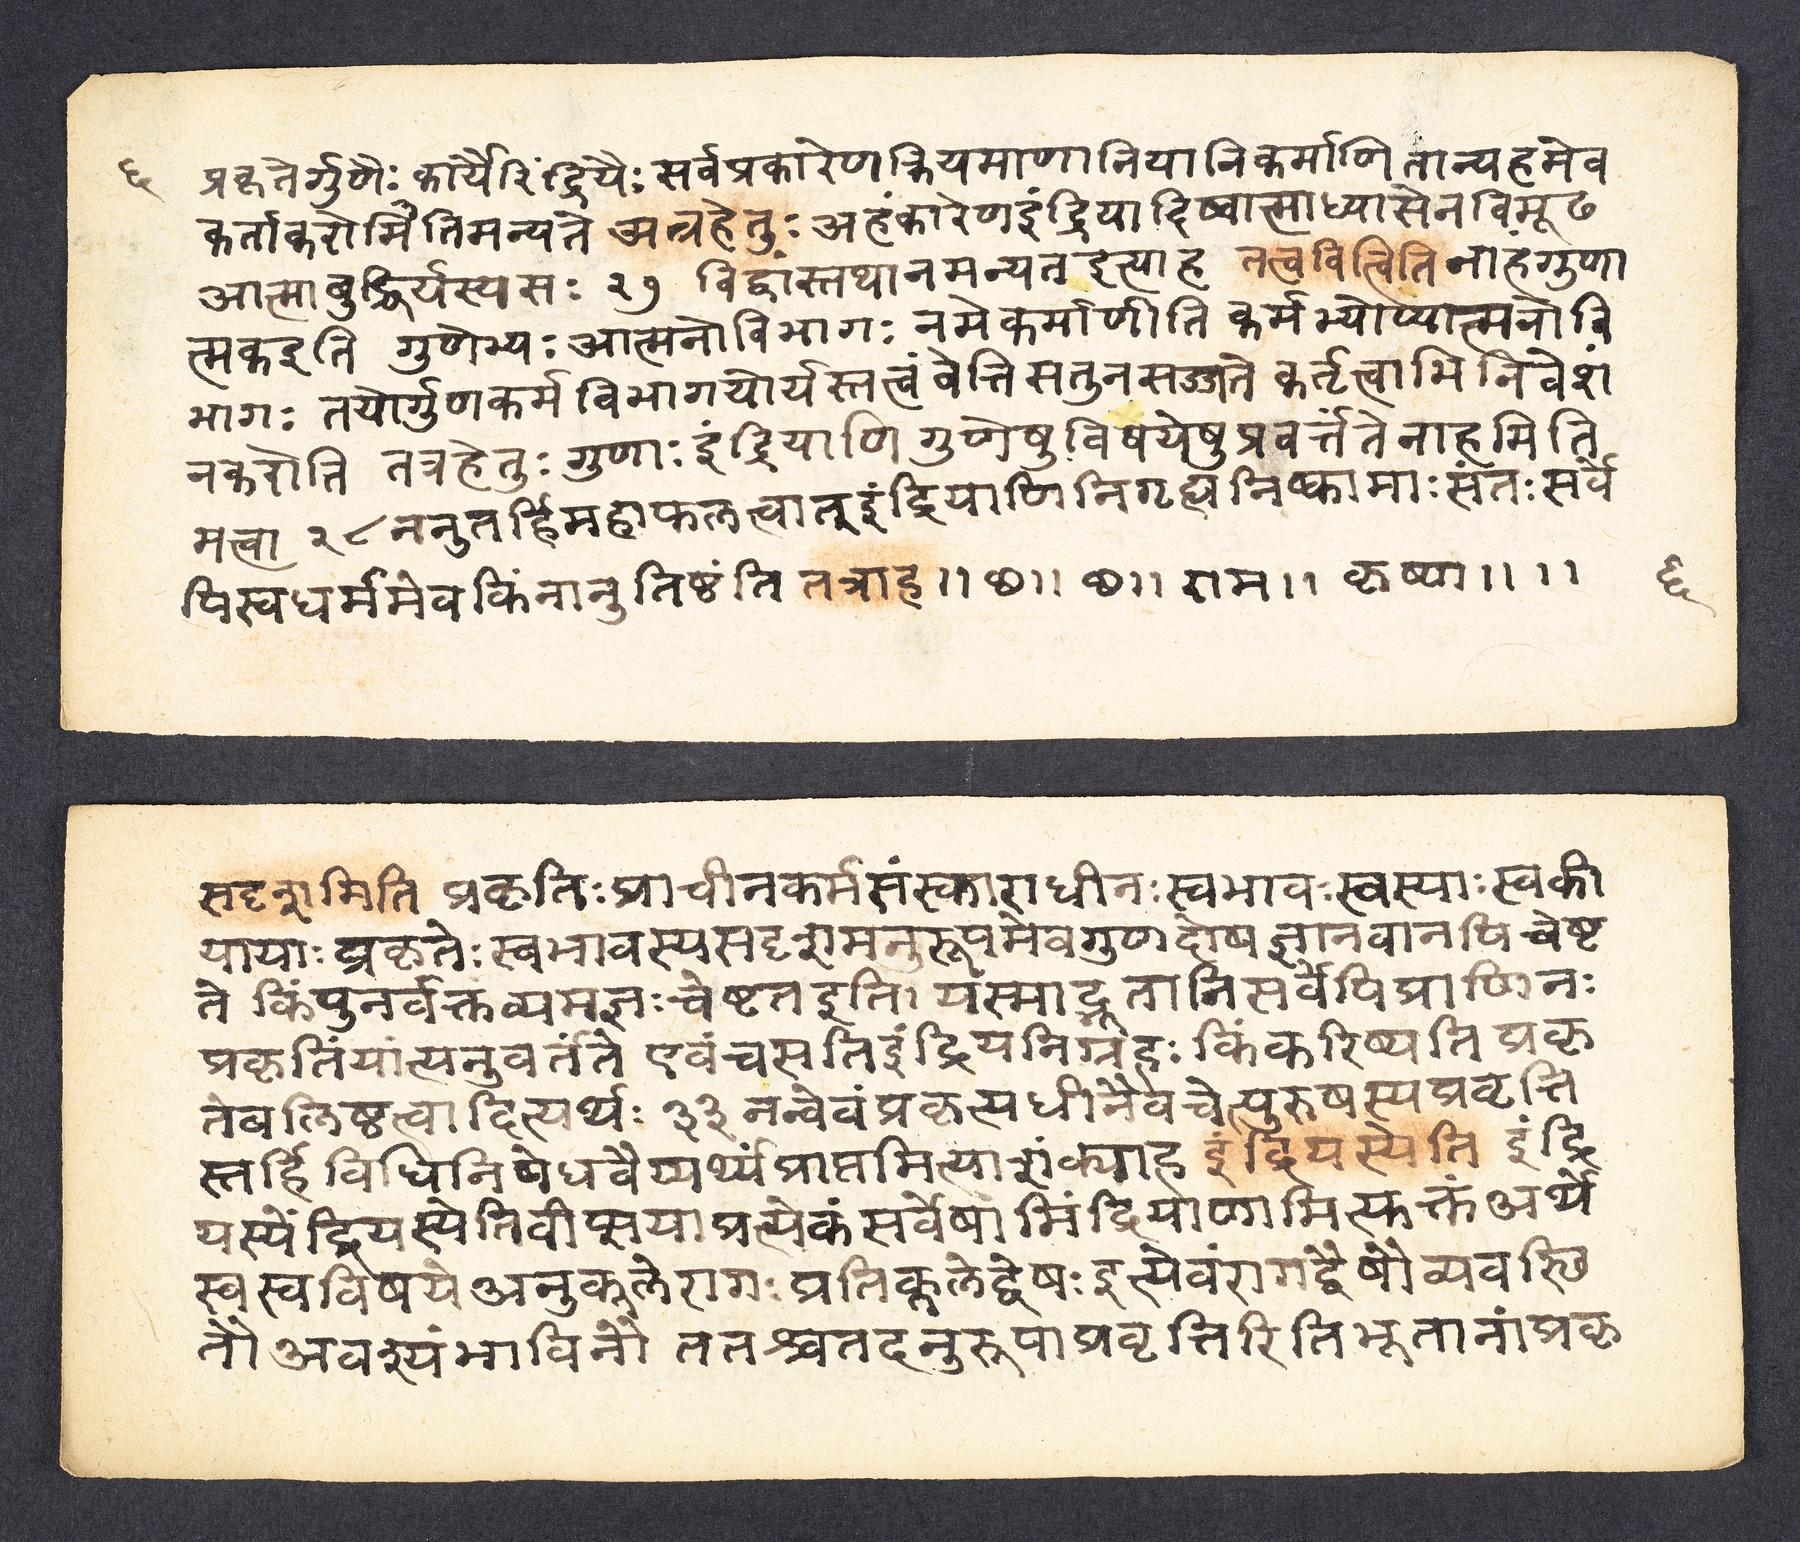 ६ प्रकृतेर्गुणैः कार्यैरिंद्रियैः सर्वप्रकारेण क्रियमाणानियानिकर्माणि तान्यहमेव
कर्ताकरोमीतिमन्यते अत्रहेतुः अहंकारेणइंद्रियादिष्वात्माध्यासेनविमूढ
आत्माबुद्धिर्यस्यसः २७ विद्वांस्तथानमन्यतइत्याह तत्वविलिति नाहंगुणा
त्मकइति गुणेभ्यः आत्मनोविभागः नमेकर्माणीति कर्मभ्योप्यात्मनोवि
भागः तयोर्गुणकर्मविभागयोर्यस्तत्त्वंवेत्तिसतुनसज्जते कर्तृत्वाभिनिवेशं
नकरोति तत्रहेतुः गुणाः इंद्रियाणि गुणेषुविषयेषुप्रवर्त्तंतेनाहमिति
मत्वा २८ ननुतर्हिमहाफलत्वात्इंद्रियाणिनिगृह्यनिष्कामाः संतः सर्वे
पिस्वधर्ममेवकिंनानुतिष्ठंति तत्राह॥ छ॥ छ॥ राम॥ कृष्ण॥ ॥ ६
सदृशमिति प्रकृतिः प्राचीनकर्मसंस्काराधीनः स्वभावः स्वस्याः स्वकी
यायाः प्रकृतेः स्वभावस्यसदृशमनुरूपमेवगुणदोषज्ञानवानपि चेष्ट
ते किंपुनर्वक्तव्यमज्ञः चेष्टतइति। यस्माद्भूतानिसर्वेपिप्राणिनः
प्रकृतिंयांत्यनुवर्तंते एवंचसतिइंद्रियनिग्रहः किंकरिष्यति प्रकृ
तेबलिष्ठत्वादित्यर्थः ३३ नन्वेवंप्रकृत्यधीनैवचेत्पुरुषस्यप्रवृत्ति
स्तर्हि विधिनिषेधवैय्यर्थ्यंप्राप्तमित्याशंक्याह इंद्रियस्येति इंद्रि
यस्येंद्रियस्येतिवीप्सयाप्रत्येकंसर्वेषामिंद्रियाणामित्युक्तं अर्थे
स्वस्वविषये अनुकूलेरागः प्रतिकूलेद्वेषः इत्येवंरागद्वेषौव्यवस्थि
तौ अवश्यंभाविनौ ततश्चतदनुरूपाप्रवृत्तिरितिभूतानांप्रकृ